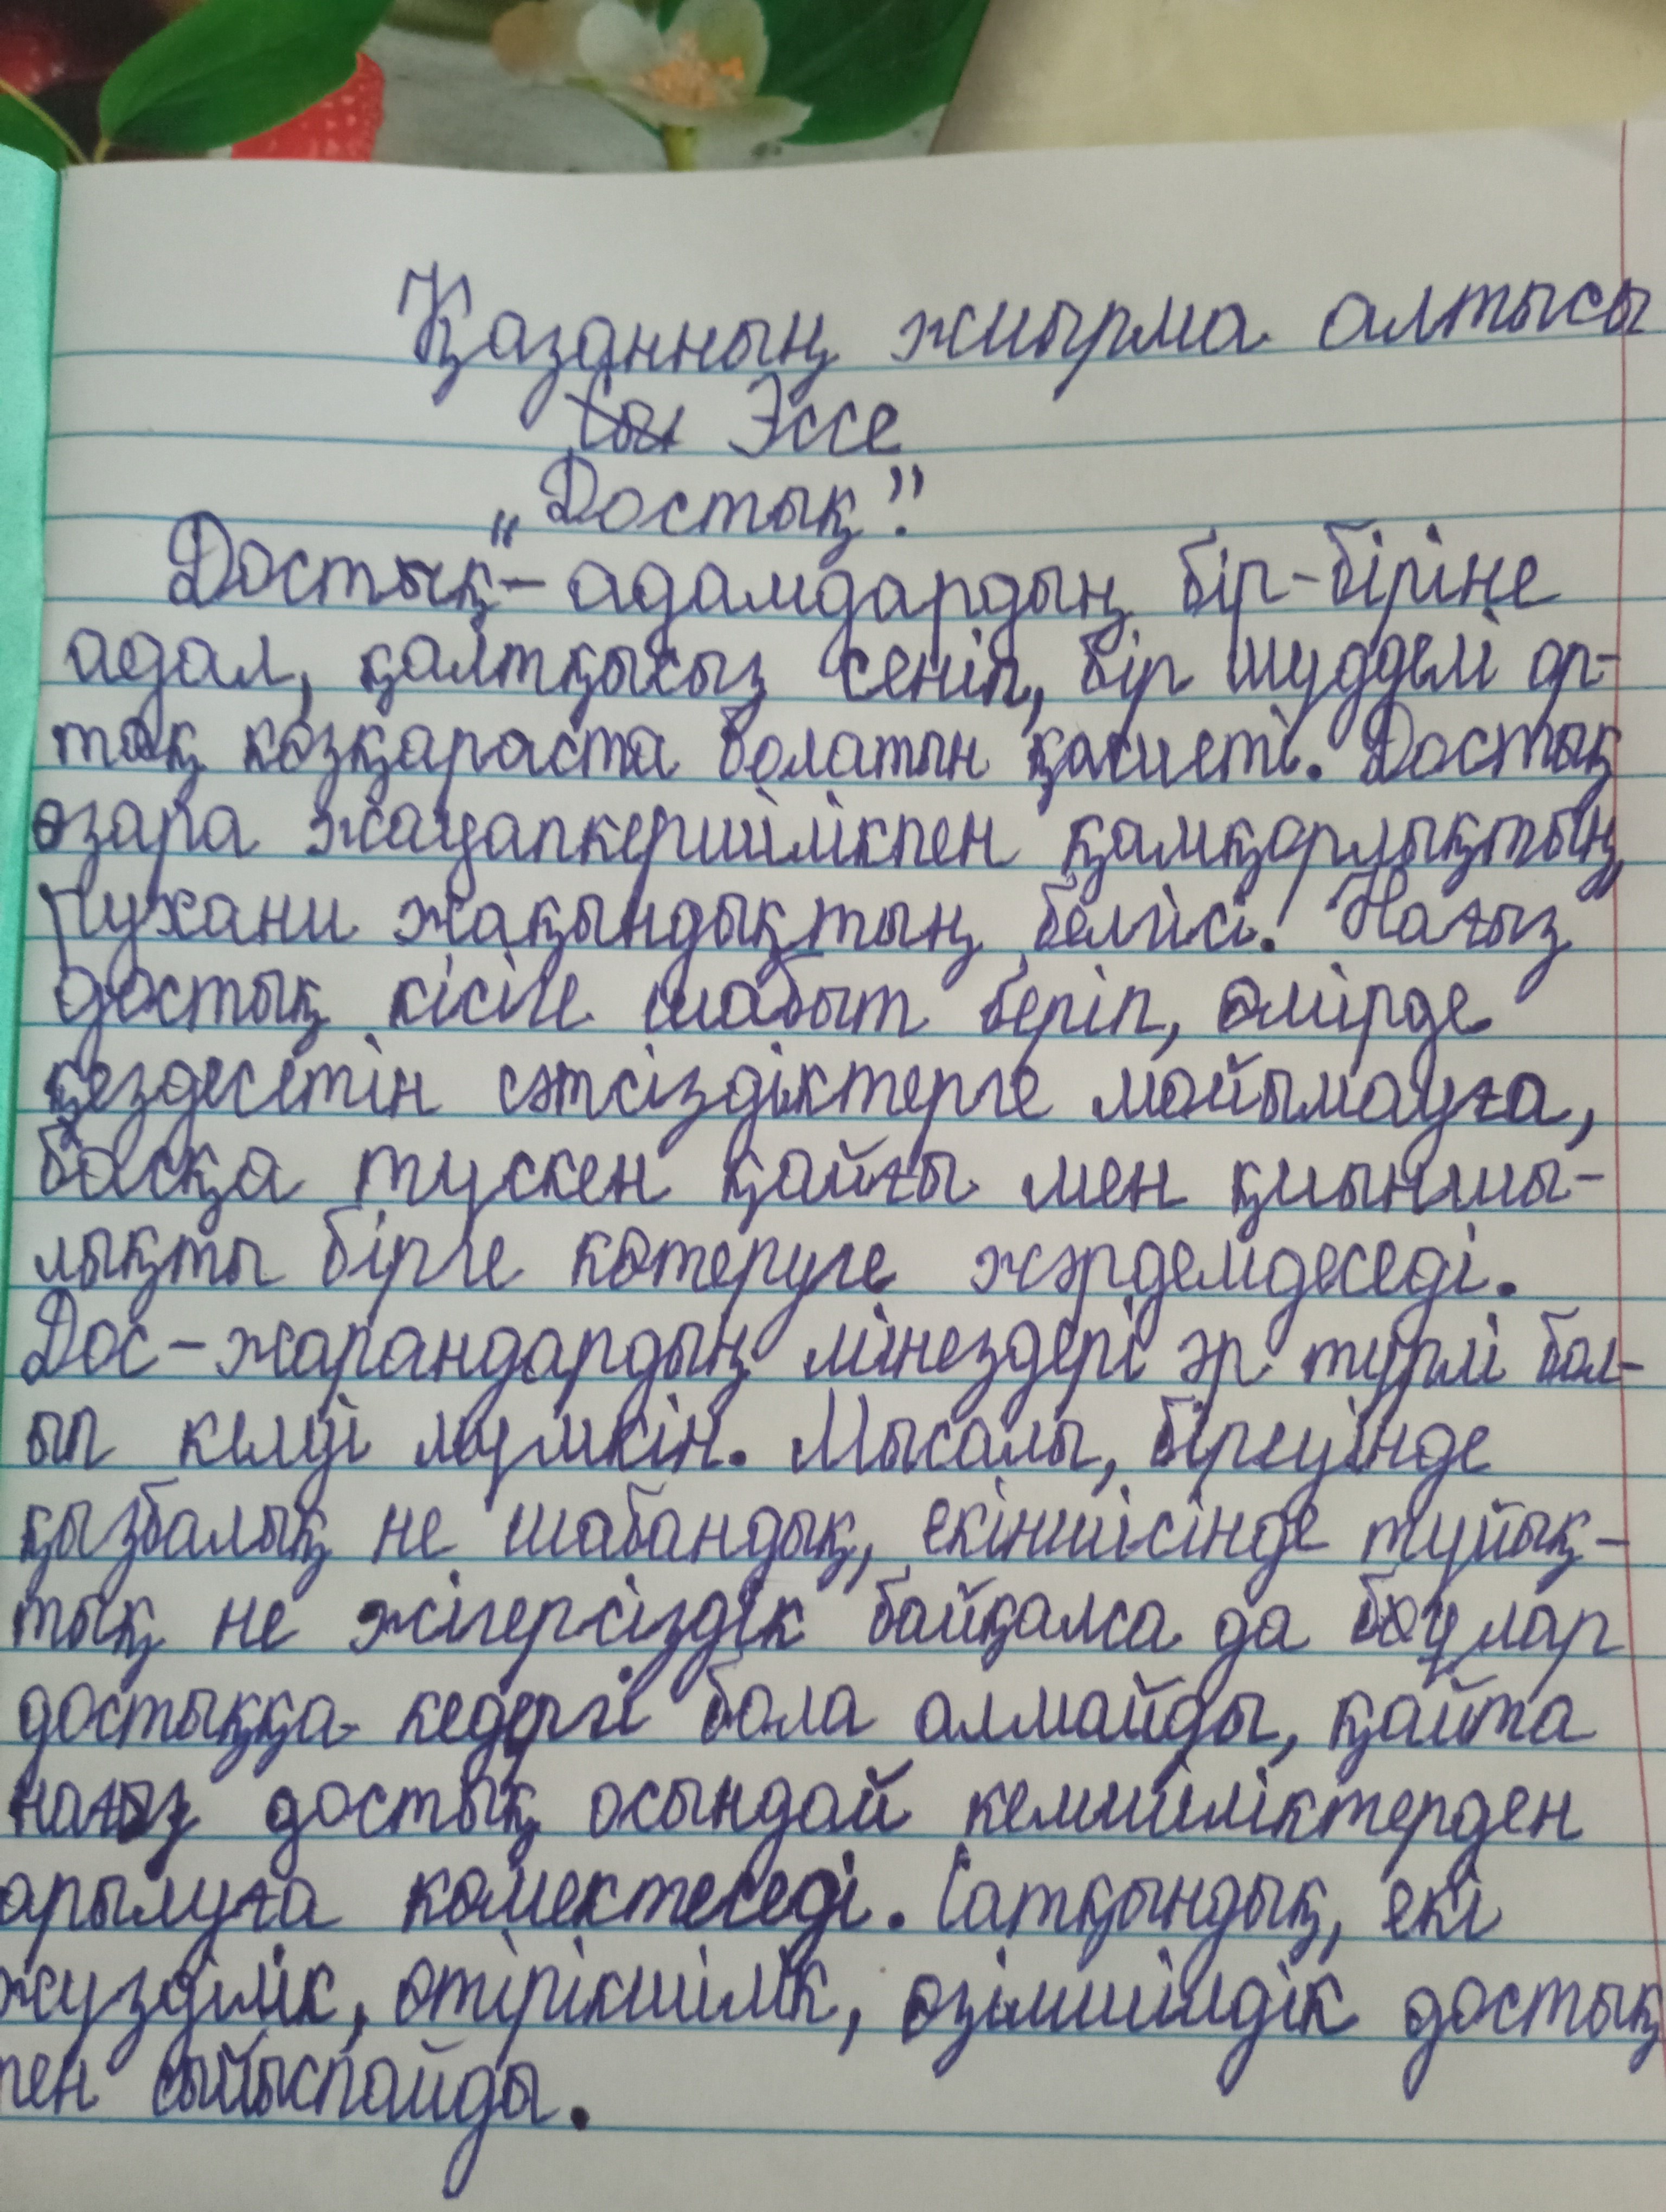 Қазанның жиырма алтысы
Эссе
„Достық".
Достық – адамдардың бір-біріне
адал, қалтқысыз сеніп, бір мүдделі ор-
тақ көзқараста болатын қасиеті. Достық
өзара жауапкершілікпен қамқорлықтың,
рухани жақындықтың белгісі. Нағыз
достық кісіге шабыт беріп, өмірде
кездесетін сәтсіздіктерге мойымауға,
басқа түскен қайғы мен қиыншы-
лықты бірге көтеруге жәрдемдеседі.
Дос-жарандардың мінездері әр түрлі бол-
ып келуі мүмкін. Мысалы, біреуінде
қызбалық не шабандық, екіншісінде тұйық-
тық не жігерсіздік байқалса да бұлар
достыққа кедергі бола алмайды, қайта
нағыз достық осындай кемшіліктерден
арылуға көмектеседі. Сатқындық, екі
жүзділік, өтірікшілік, өзімшілдік достық
пен сыйыспайды.